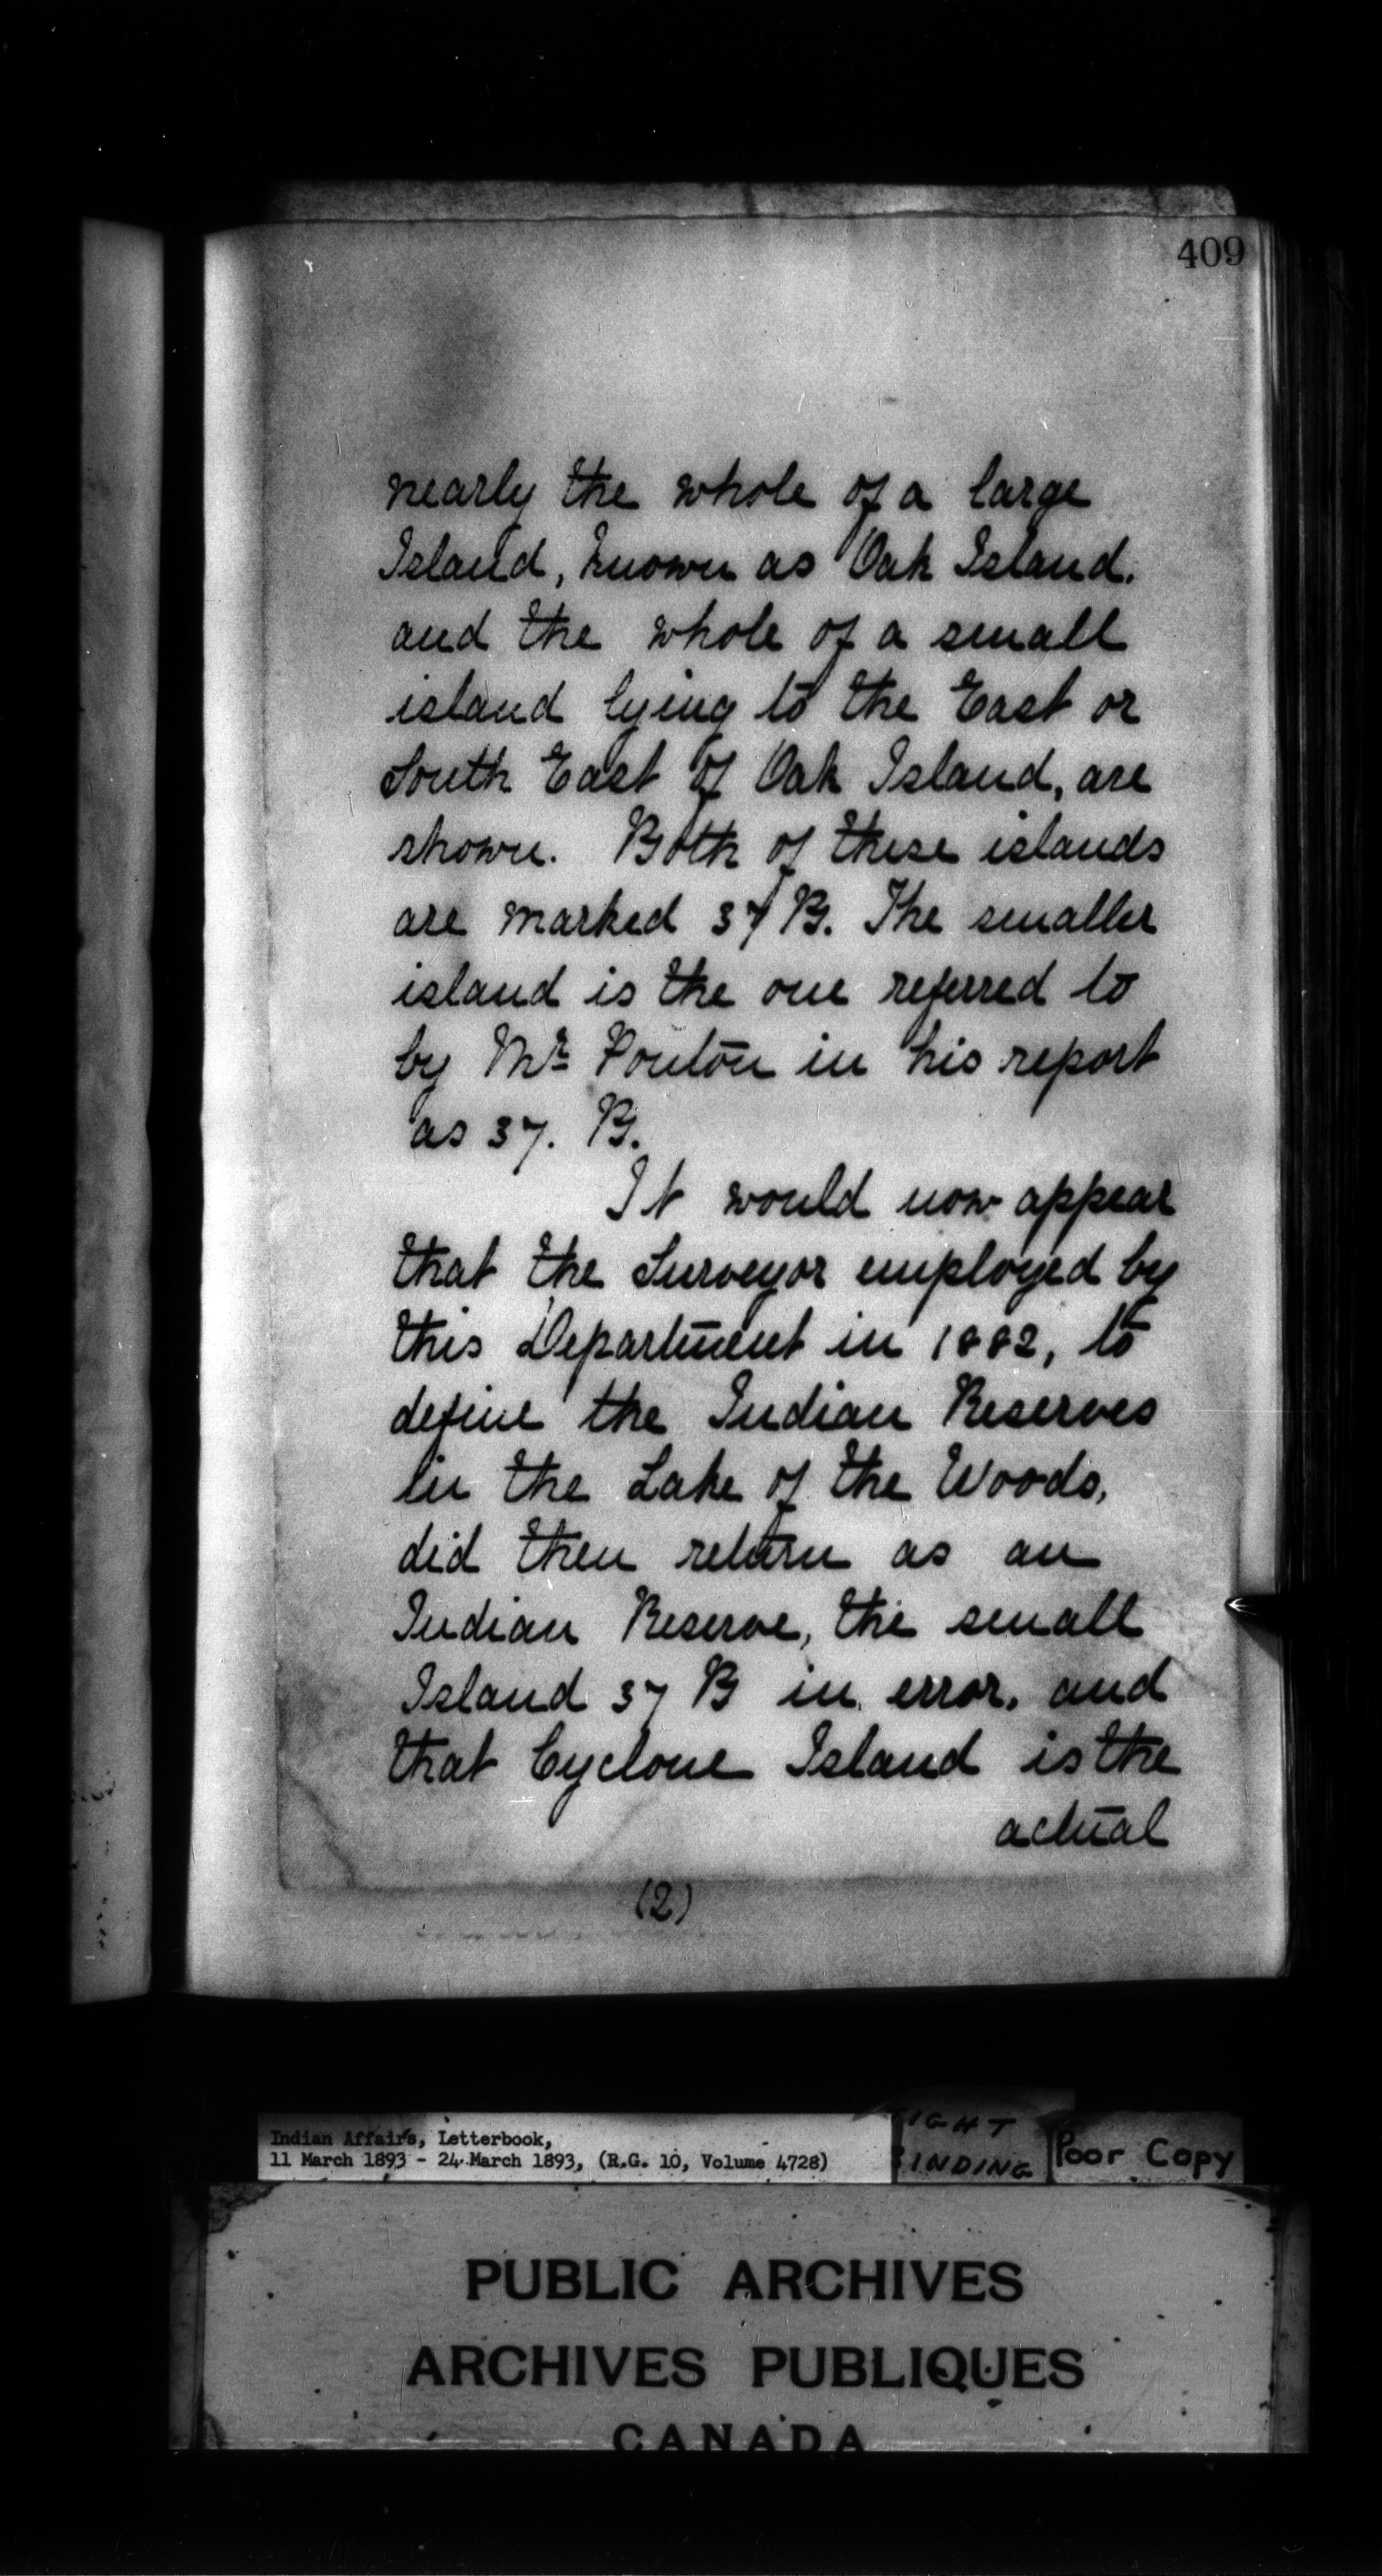 409
nearly the whole of a large
Island, known as Oak Island.
and the whole of a small
island lying to the East or
South East of Oak Island, are
shown. Both of these islands
are marked 37 B. The smaller
island is the one referred to
by Mr. Ponton in his report
as 37. B.
It would now appear
that the Surveyor employed by
this Department in 1882, to
define the Indian Reserves
in the Lake of the Woods,
did then return as an
Indian Reserve, the small
Island 37 B in error, and
that Cyclone Island is the
actual
(2)
Indian Affairs, Letterbook,
11 March 1893 - 24 March 1893, (R.G. 10, Volume 4728)
IGHT
BINDING
Poor Copy
PUBLIC ARCHIVES
ARCHIVES PUBLIQUES
CANADA